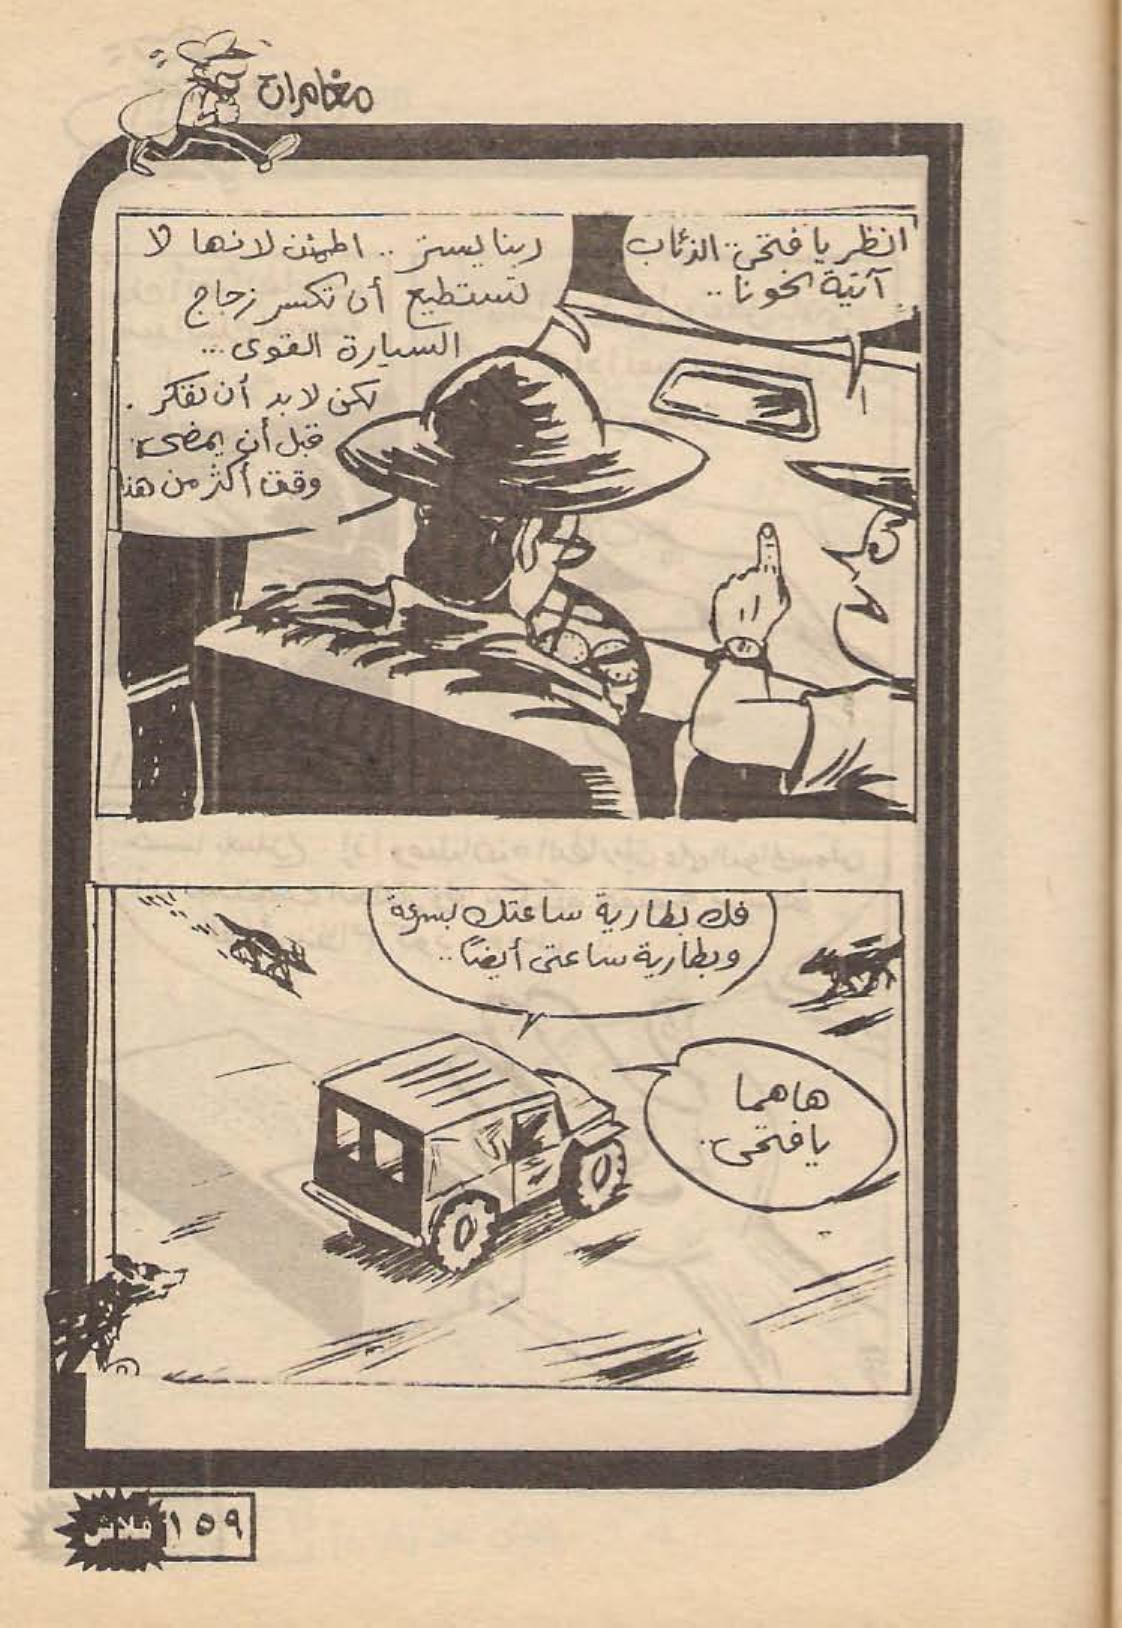 مغامرات
انظر يا فتحى.. الذئاب
آتية نحونا..
ربنا يستر .. اطمئن لانها لا
تستطيع أن تكسر زجاج
السيارة القوى...
لكن لا بد أن نفكر .
قبل أن يمضى
وقت أكثر من هذا
فك بطارية ساعتك بسرعة
وبطارية ساعتى أيضًا..
هاهما
يا فتحى..
فلاش ١٥٩